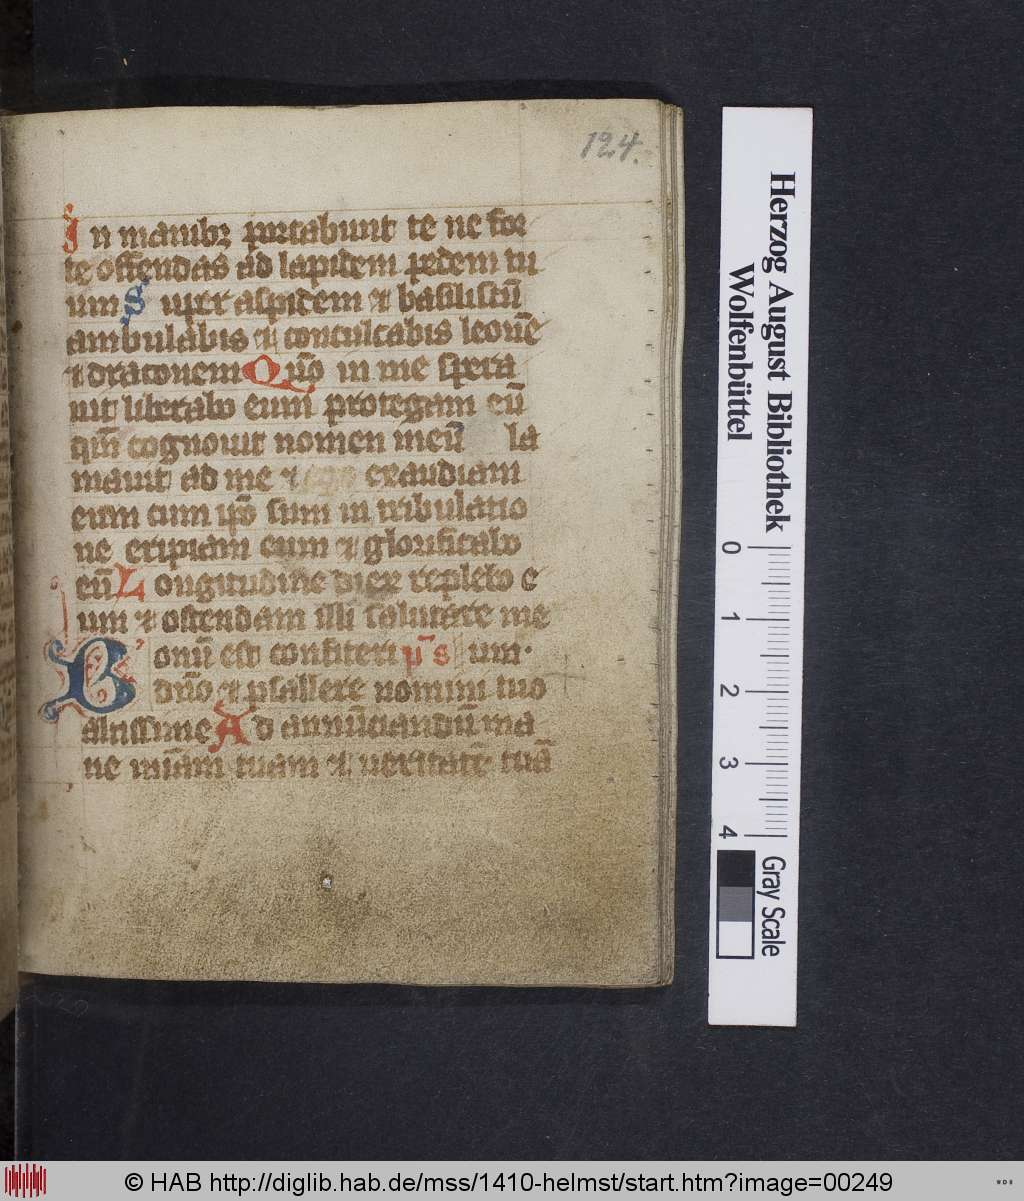 124.
In manibꝫ portabunt te ne for
te offendas ad lapidem pedem tu
um Super aspidem ⁊ basiliscū
ambulabis ⁊ conculcabis leonē
⁊ draconem Qm̄ in me spera
uit liberabo eum protegam eū
qm̄ cognouit nomen meū la
mauit ad me ⁊ ego exaudiam
eum cum ip̄o sum in tribulatio
ne eripiam eum ⁊ glorificabo
eū Longitudine dieꝝ replebo e
um ⁊ ostendam illi salutare me
Bonū est confiteri p̄s um·
dn̄o ⁊ psallere nomini tuo
altissime Ad annūciandū ma
ne mīam tuam ⁊ ueritatē tuā
Herzog August Bibliothek
Wolfenbüttel
0 1 2 3 4
Gray Scale
© HAB http://diglib.hab.de/mss/1410-helmst/start.htm?image=00249